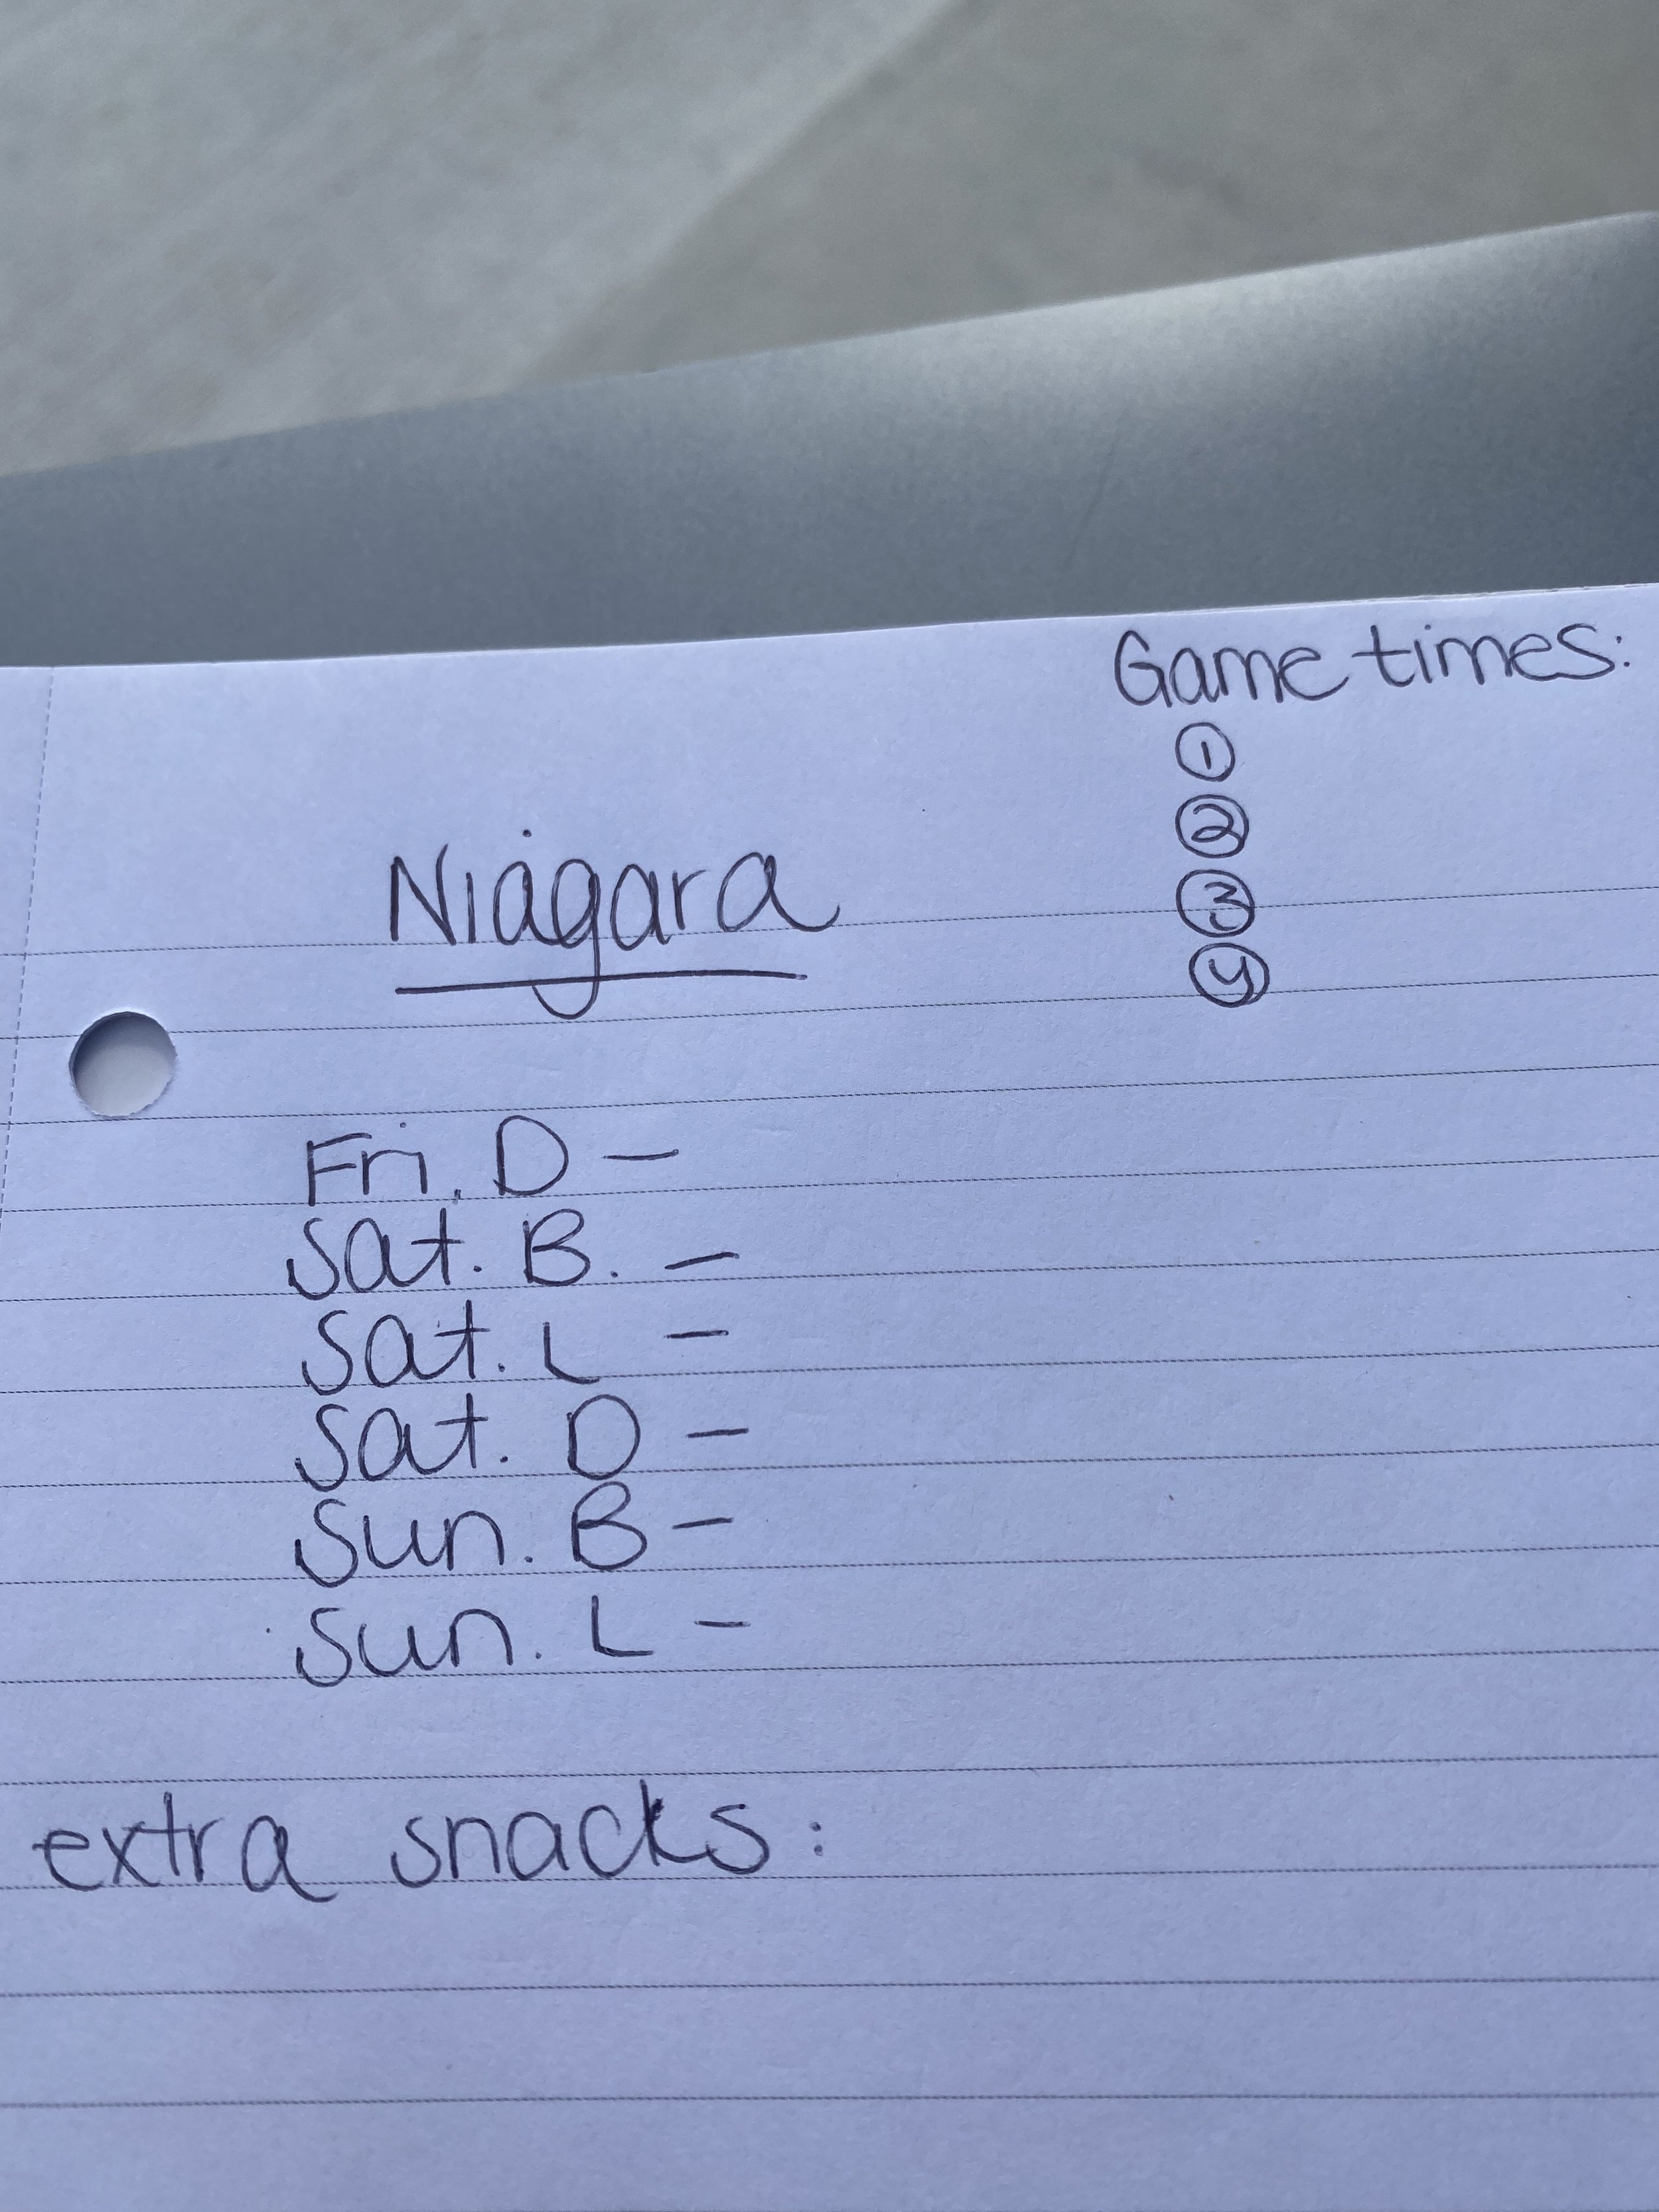 Game times:
①
②
③
④
Niagara
Fri. D –
Sat. B. –
Sat. L –
Sat. D –
Sun. B –
Sun. L –
extra snacks: